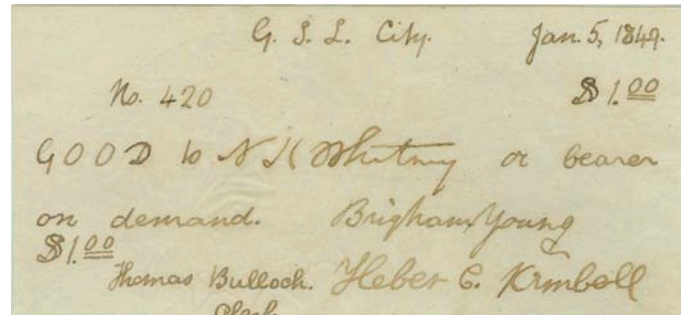 G. S. L. City. Jan. 5, 1849.
No. 420 $1.00
GOOD to N K Whitney or bearer
on demand. Brigham Young
$1.00
Thomas Bullock. Heber C. Kimball
Clerk